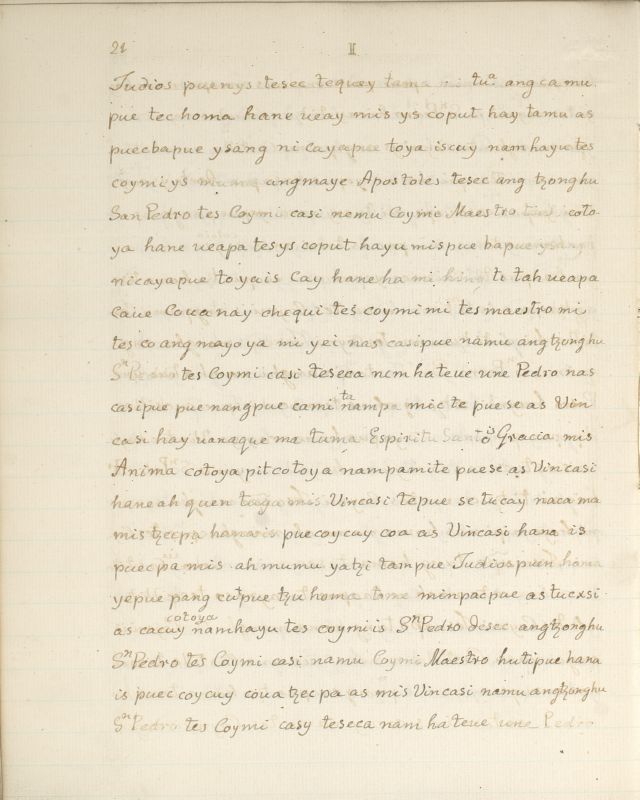 21 II
Judios puenys tesec tequey tama mi tuª ang ca mu
pue tec homa hane ueay mis ys coput hay tamu as
puecbapue ysang ni cayapue toya iscuy namhayu tes
coymi ys angmaye Apostoles tesec ang tzonghu
San Pedro tes Coymi casi nemu Coyme Maestro coto-
ya hane ueapa tesys coput hayu mis pue bapue ysangs
nicayapue toyais Cay hane ha mi te tah ueapa
caue Coua nay chequi tes coymi mi tes maestro mi
tes co ang mayo ya mi yei nas casipue namu angtzonghu
Sⁿ Pedro tes Coymi casi teseca nem hateue une Pedro nas
casipue pue nangpue cami ta nampa mic te pue se as Vin
casi hay uanaque ma tuma Espiritu Santo is Gracia mis
Anima cotoya pit cotoya nampamite puese as Vincasi
hane ah quen toya mis Vincasi tepue se tucay naca ma
mis tzecpa hana is puecoycuy coa as Vincasi hana is
puec pa mis ah mumu yatzi tampue Judios puen homa
yepue pang cutpue tzu homa tome minpacpue as tucxsi
as cacuy cotoya namhayu tes coymi is Sⁿ Pedro desec angtzonghu
Sⁿ Pedro tes Coymi casi namu Coymi Maestro hutipue hana
is puec coycuy coua tzec pa as mis Vincasi namu angtzonghu
Sⁿ Pedro tes Coymi casy teseca nam hateue une Pedro